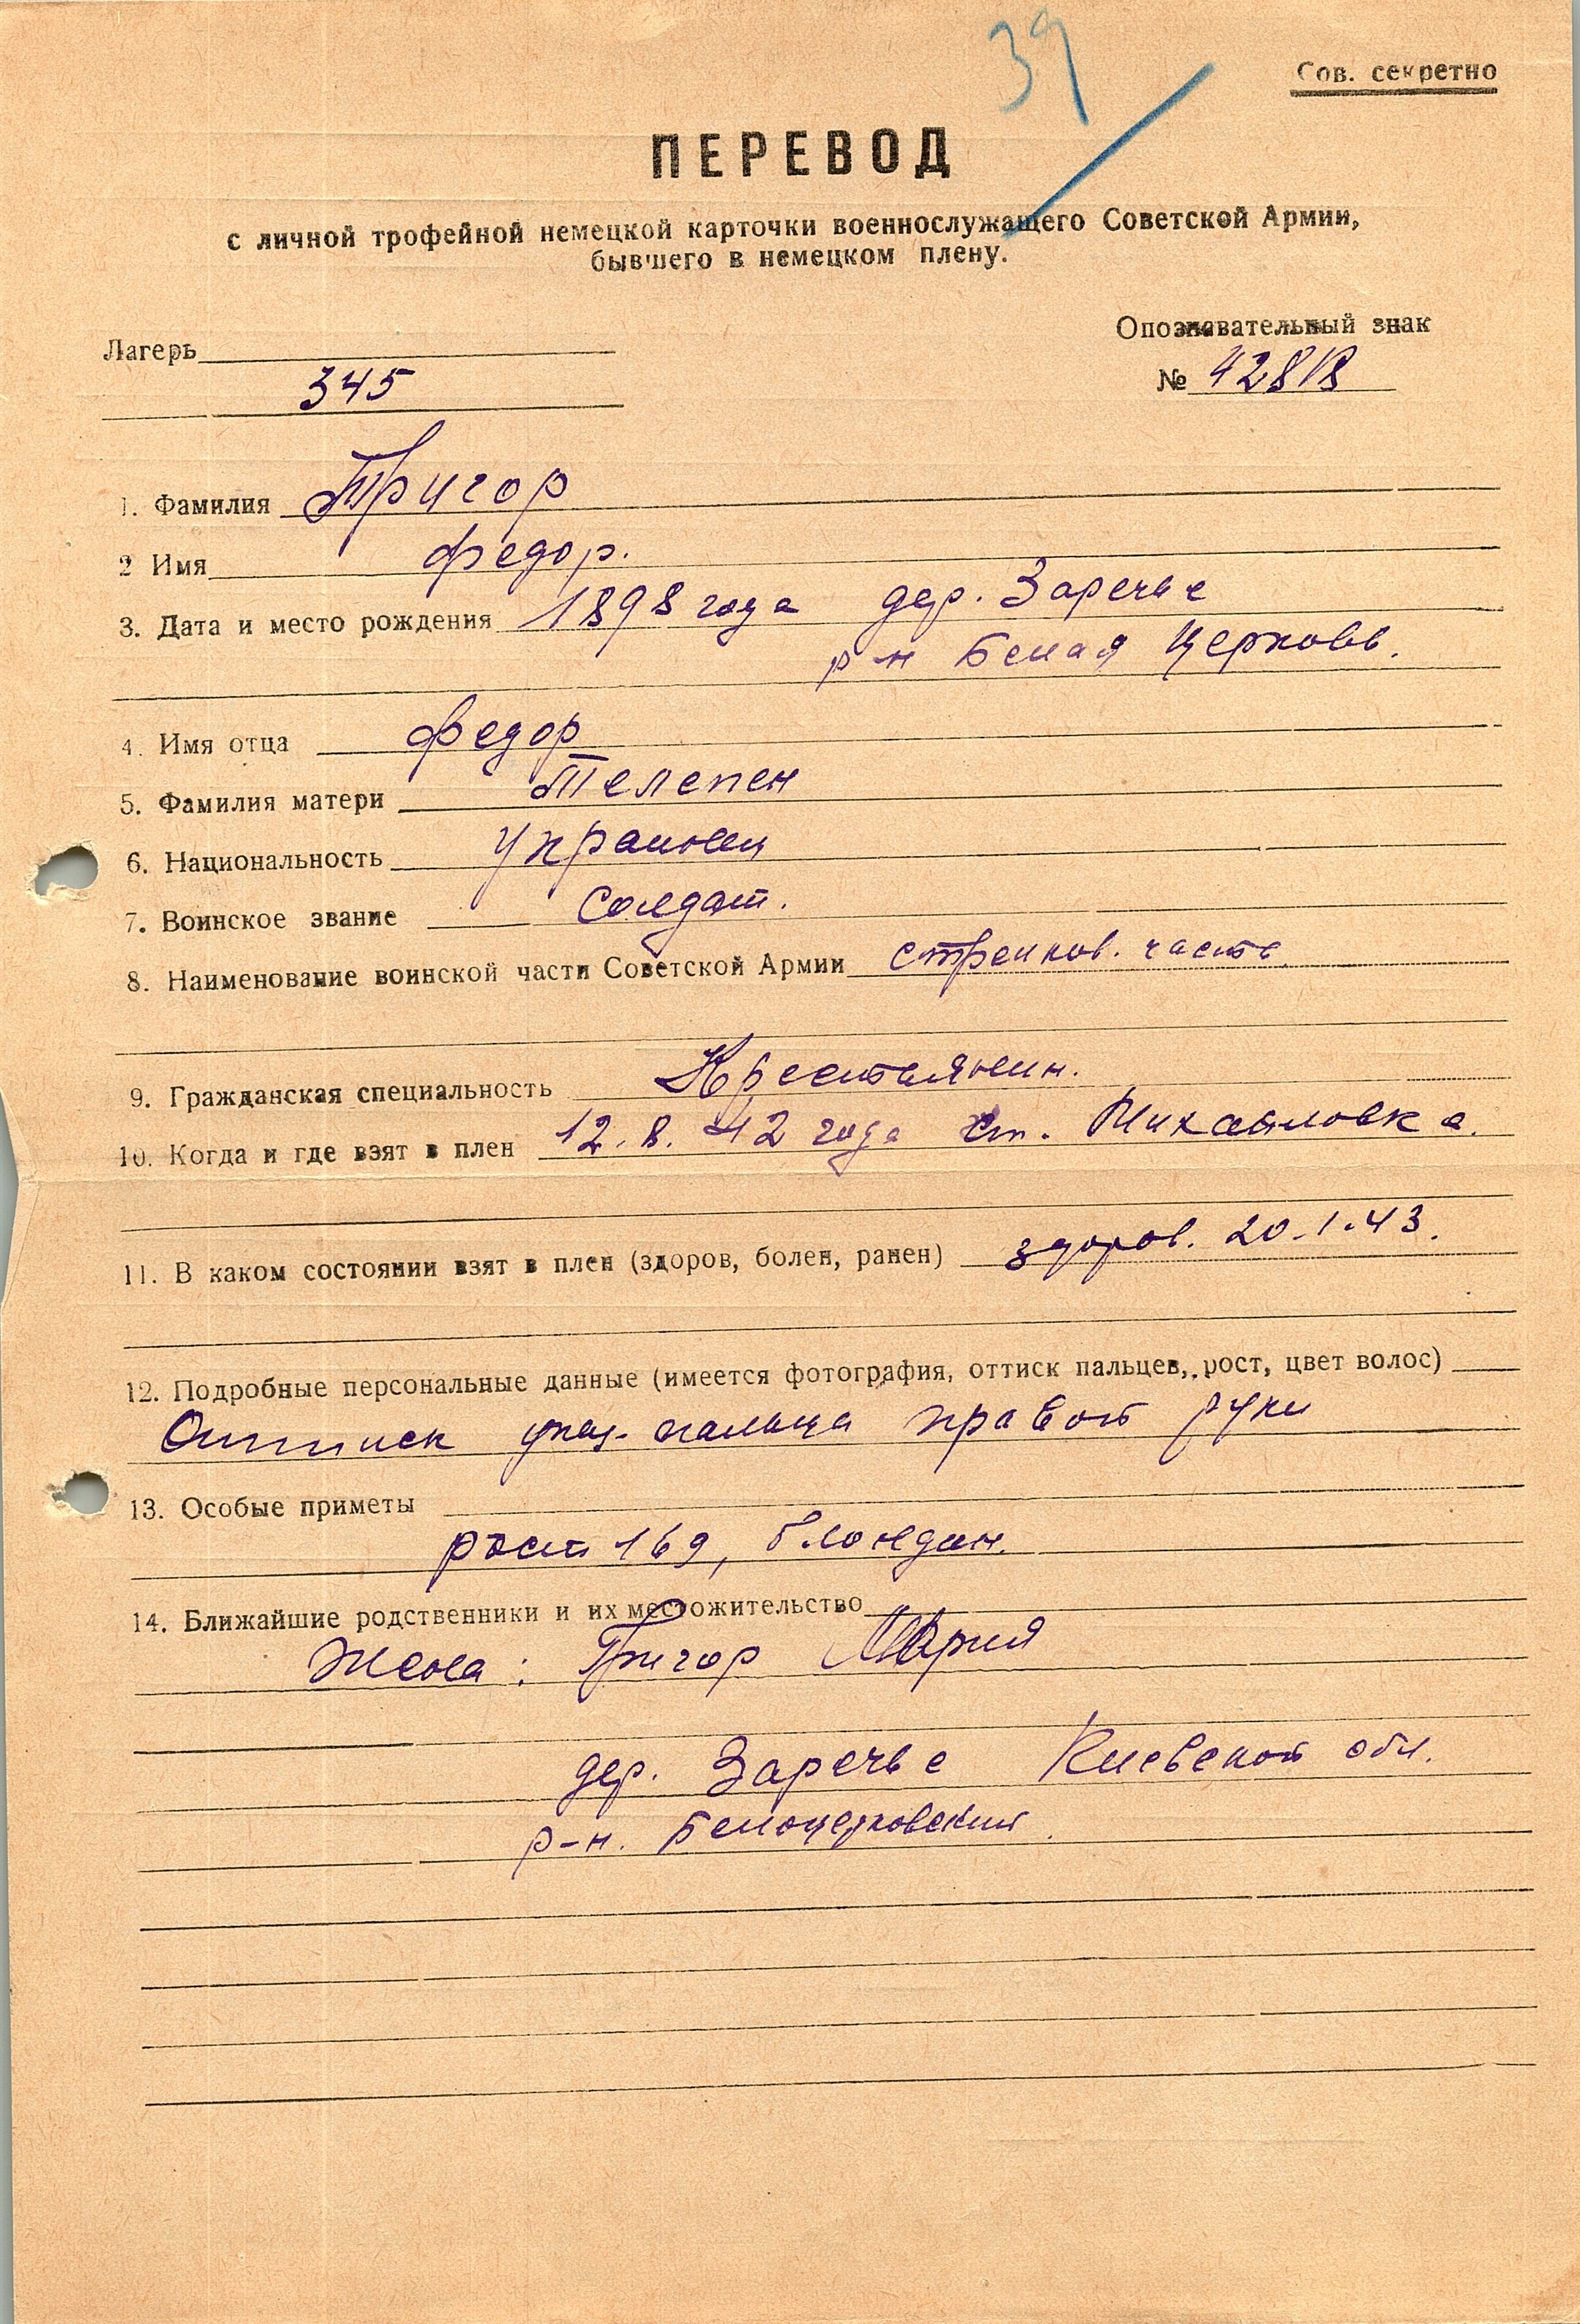 39
Сов. секретно
ПЕРЕВОД
с личной трофейной немецкой карточки военнослужащего Советской Армии,
бывшего в немецком плену.
Лагерь
345
Опознавательный знак
№ 42818
1. Фамилия Тригор
2 Имя Федор.
3. Дата и место рождения 1898 года дер. Заречье
р-н Белая Церковь.
4. Имя отца Федор
5. Фамилия матери Телепен
6. Национальность Украинец
7. Воинское звание Солдат.
8. Наименование воинской части Советской Армии стрелков. часть
9. Гражданская специальность Крестьянин.
10. Когда и где взят в плен 12.8.42 года ст. Михайловка.
11. В каком состоянии взят в плен (здоров, болен, ранен) здоров. 20.1.43.
12. Подробные персональные данные (имеется фотография, оттиск пальцев, рост, цвет волос)
Оттиск указ. пальца правой руки
13. Особые приметы
рост 169, блондин.
14. Ближайшие родственники и их местожительство
Жена: Тригор Мария
дер. Заречье Киевской обл.
р-н. Белоцерковский.